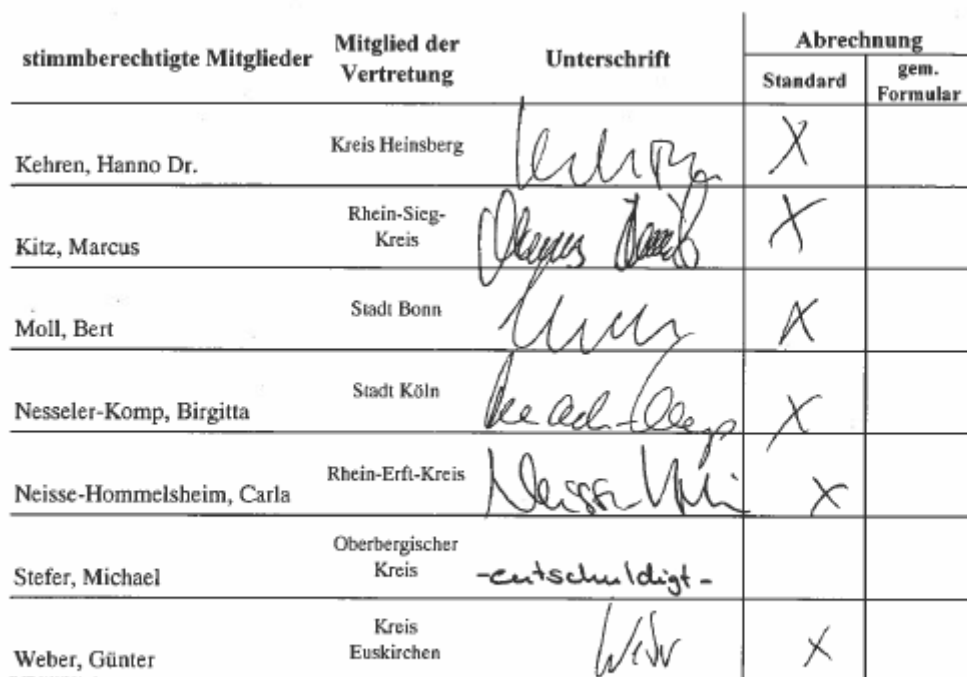 stimmberechtigte Mitglieder
Mitglied der
Vertretung
Unterschrift
Abrechnung
Standard
gem.
Formular
Kehren, Hanno Dr.
Kreis Heinsberg
X
Kitz, Marcus
Rhein-Sieg-
Kreis
X
Moll, Bert
Stadt Bonn
X
Nesseler-Komp, Birgitta
Stadt Köln
X
Neisse-Hommelsheim, Carla
Rhein-Erft-Kreis
X
Stefer, Michael
Oberbergischer
Kreis
-entschuldigt-
Weber, Günter
Kreis
Euskirchen
X